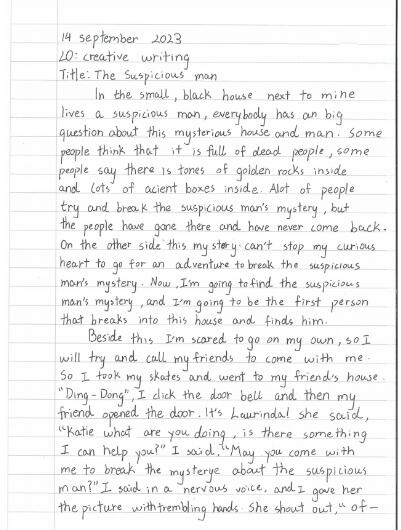 14 september 2023
LO: creative writing
Title: The Suspicious man
In the small, black house next to mine
lives a suspicious man, everybody has an big
question about this mysterious house and man. Some
people think that it is full of dead people, some
people say there is tones of golden rocks inside
and lots of acient boxes inside. Alot of people
try and break the suspicious man's mystery, but
the people have gone there and have never come back.
On the other side this mystery can't stop my curious
heart to go for an adventure to break the suspicious
man's mystery. Now, I'm going to find the suspicious
man's mystery, and I'm going to be the first person
that breaks into this house and finds him.
Beside this I'm scared to go on my own, so I
will try and call my friends to come with me.
So I took my skates and went to my friend's house.
"Ding-Dong", I click the door bell and then my
friend opened the door. It's Laurinda! she said,
"Katie what are you doing, is there something
I can help you?" I said, "May you come with
me to break the mysterye about the suspicious
man?" I said in a nervous voice, and I gave her
the picture with trembling hands. She shout out, " of-